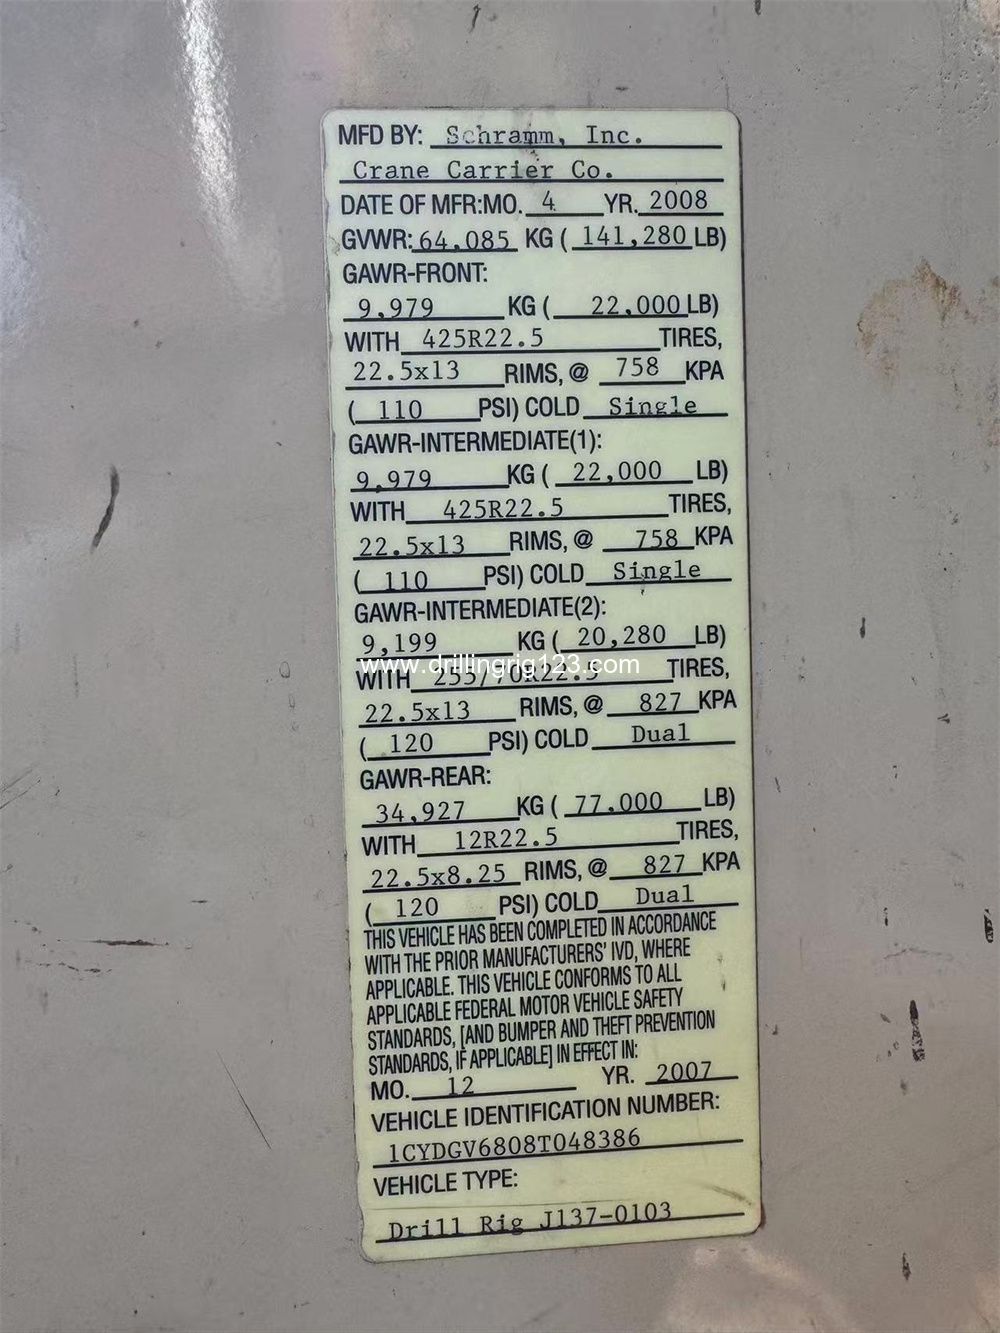 MFD BY: Schramm, Inc.
Crane Carrier Co.
DATE OF MFR:MO. 4 YR. 2008
GVWR: 64,085 KG ( 141,280 LB)
GAWR-FRONT:
9,979 KG ( 22,000 LB)
WITH 425R22.5 TIRES,
22.5x13 RIMS, @ 758 KPA
( 110 PSI) COLD Single
GAWR-INTERMEDIATE(1):
9,979 KG ( 22,000 LB)
WITH 425R22.5 TIRES,
22.5x13 RIMS, @ 758 KPA
( 110 PSI) COLD Single
GAWR-INTERMEDIATE(2):
9,199 KG ( 20,280 LB)
www.drillingrig123.com
WITH 255/70R22.5 TIRES,
22.5x13 RIMS, @ 827 KPA
( 120 PSI) COLD Dual
GAWR-REAR:
34,927 KG ( 77,000 LB)
WITH 12R22.5 TIRES,
22.5x8.25 RIMS, @ 827 KPA
( 120 PSI) COLD Dual
THIS VEHICLE HAS BEEN COMPLETED IN ACCORDANCE
WITH THE PRIOR MANUFACTURERS' IVD, WHERE
APPLICABLE. THIS VEHICLE CONFORMS TO ALL
APPLICABLE FEDERAL MOTOR VEHICLE SAFETY
STANDARDS, [AND BUMPER AND THEFT PREVENTION
STANDARDS, IF APPLICABLE] IN EFFECT IN:
MO. 12 YR. 2007
VEHICLE IDENTIFICATION NUMBER:
1CYDGV6808T048386
VEHICLE TYPE:
Drill Rig J137-0103